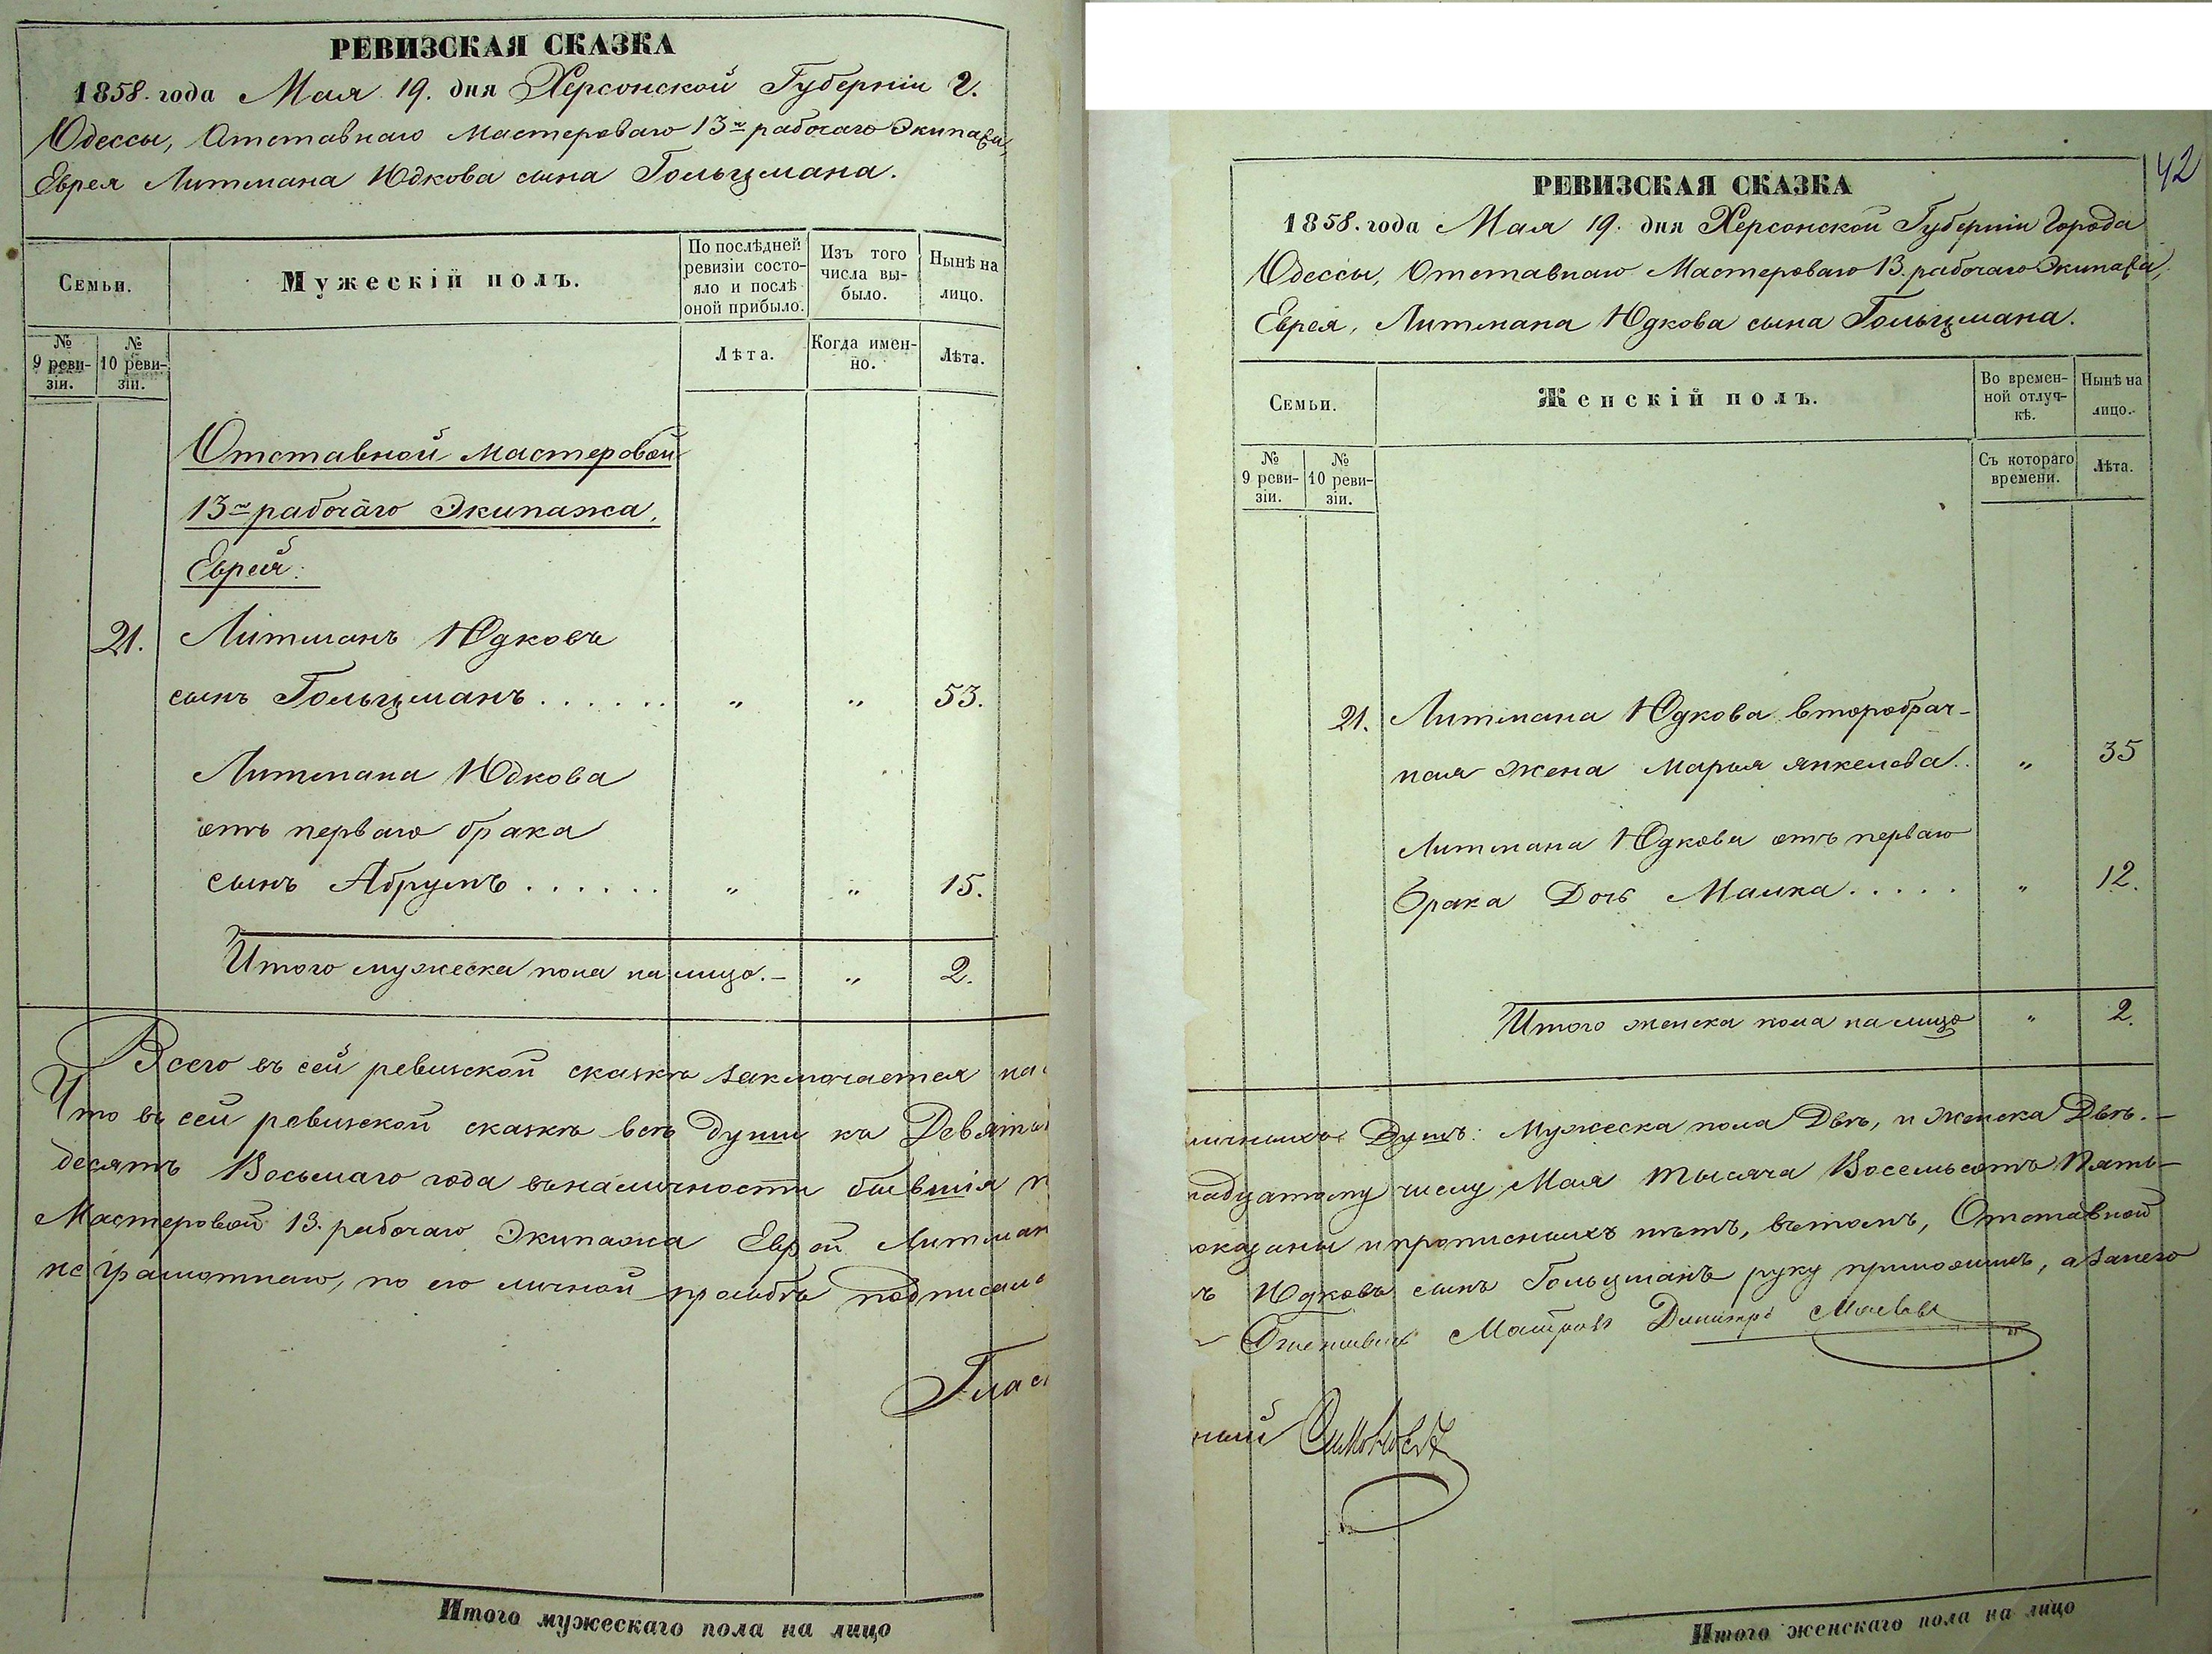 РЕВИЗСКАЯ СКАЗКА
1858. года Мая 19. дня Херсонской Губернiи г.
Одессы, Отставнаго Мастероваго 13го рабочаго Экипажа,
Еврея Литмана Юдкова сына Гольцмана.
Семьи.
Мужескiй полъ.
По послѣдней
ревизiи состо-
яло и послѣ
оной прибыло.
Изъ того
числа вы-
было.
Нынѣ на
лицо.
№
9 реви-
зiи.
№
10 реви-
зiи.
Лѣта.
Когда имен-
но.
Лѣта.
Отставной Мастеровой
13го рабочаго Экипажа,
Еврей:
21. Литманъ Юдковъ
сынъ Гольцманъ . . . . . . „ „ 53.
Литмана Юдкова
отъ перваго брака
сынъ Абрумъ . . . . . . „ „ 15.
Итого мужеска пола на лицо. – „ 2.
Всего въ сей ревизской сказкѣ заключается на
Что въ сей ревизской сказкѣ всѣ души къ Девятна
десятъ Восьмаго года въ наличности бывшiя п
Мастеровой 13. рабочаго Экипажа Еврей Литман
не грамотнаго, по его личной прозьбѣ подписалъ
Глас
Итого мужескаго пола на лицо
42
РЕВИЗСКАЯ СКАЗКА
1858. года Мая 19. дня Херсонской Губернiи Города
Одессы, Отставнаго Мастероваго 13. рабочаго Экипажа,
Еврея, Литмана Юдкова сына Гольцмана.
Семьи.
Женскiй полъ.
Во времен-
ной отлуч-
кѣ.
Нынѣ на
лицо.
№
9 реви-
зiи.
№
10 реви-
зiи.
Съ котораго
времени.
Лѣта.
21. Литмана Юдкова второбрач-
ная жена Марья Янкелова . . „ 35
Литмана Юдкова отъ перваго
брака Дочь Малка . . . . . „ 12.
Итого женска пола на лицо „ 2.
личныхъ Душъ: Мужеска пола Двѣ, и женска Двѣ. –
надцатому числу Мая тысяча Восемьсотъ Пять-
оказаны и прописныхъ нѣтъ, въ томъ, Отставной
ъ Юдковъ сынъ Гольцманъ руку приложилъ, а за него
Отставной Матросъ Димитрi
ный
Итого женскаго пола на лицо